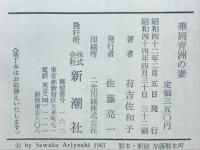 華岡青洲の妻
定価三五〇円
昭和四十二年二月五日発行
昭和四十四年四月三十日二十三刷
著者 有吉佐和子
発行者 佐藤亮一
印刷所 二光印刷株式会社
発行所 株式会社 新潮社
郵便番号 一六二
東京都新宿区矢来町
電話 東京
振替東京八〇八
(落丁本はお取替えいたします。)
© by Sawako Ariyoshi 1967
製本・新宿 加藤製本所